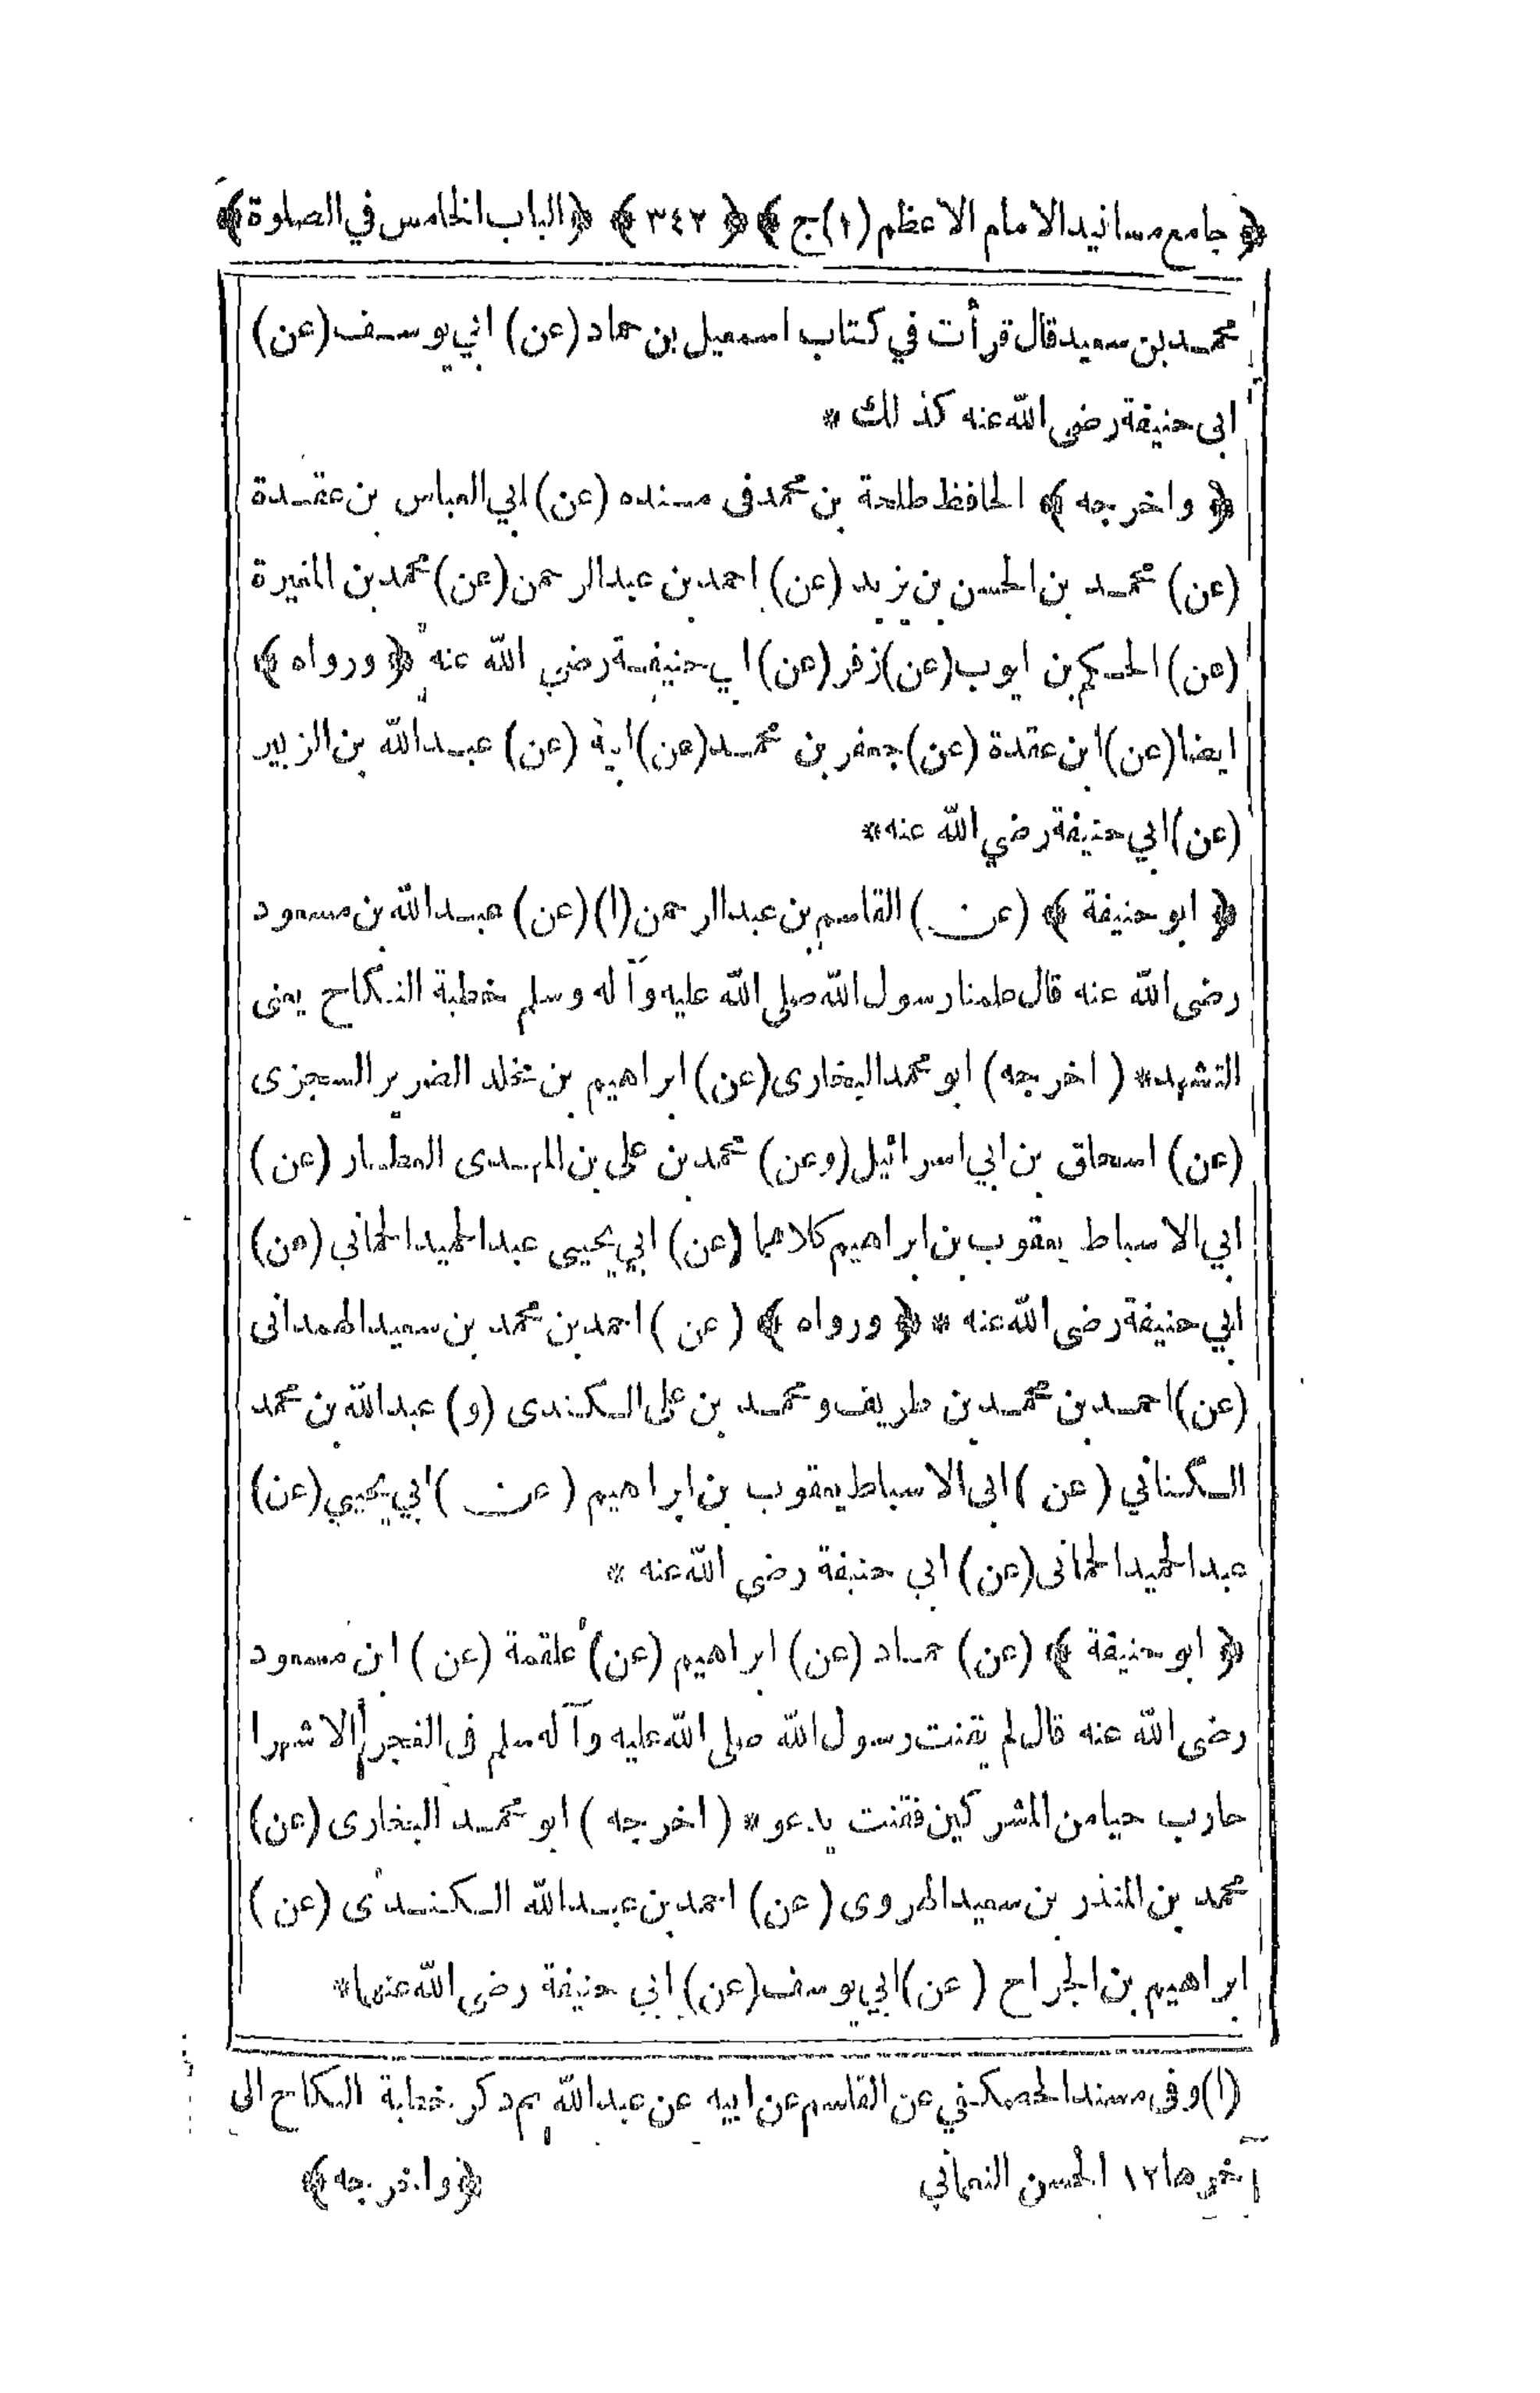 ﴿ جامع مسانيد الامام الاعظم (١) ج ﴾ ﴿ ٣٤٢ ﴾ ﴿ الباب الخامس في الصلوة ﴾
محمد بن سعيد قال قرأت في كتاب اسمعيل بن حماد (عن) ابي يوسف (عن)
ابى حنيفة رضى الله عنه كذلك *
﴿ واخرجه ﴾ الحافظ طلحة بن محمد فى مسنده (عن) ابي العباس بن عقدة
(عن) محمد بن الحسن بن يزيد (عن) احمد بن عبدالرحمن (عن) محمد بن المغيرة
(عن) الحكم بن ايوب (عن) زفر (عن) ابي حنيفة رضي الله عنه ﴿ ورواه ﴾
ايضا (عن) ابن عقدة (عن) جعفر بن محمد (عن) ابيه (عن) عبدالله بن الزبير
(عن) ابي حنيفة رضي الله عنه *
﴿ ابو حنيفة ﴾ (عن) القاسم بن عبدالرحمن (١) (عن) عبدالله بن مسعود
رضى الله عنه قال علمنا رسول الله صلى الله عليه وآله وسلم خطبة النكاح يعنى
التشهد * (اخرجه) ابو محمد البخارى (عن) ابراهيم بن مخلد الضرير السجزى
(عن) اسحاق بن ابي اسرائيل (وعن) محمد بن على بن المهدى العطار (عن)
ابي الاسباط يعقوب بن ابراهيم كلاهما (عن) ابي يحيى عبدالحميد الحماني (عن)
ابي حنيفة رضى الله عنه * ﴿ ورواه ﴾ (عن) احمد بن محمد بن سعيد الهمدانى
(عن) احمد بن محمد بن طريف ومحمد بن على الكندى (و) عبدالله بن محمد
الكناني (عن) ابى الاسباط يعقوب بن ابراهيم (عن) ابي يحيي (عن)
عبدالحميد الحمانى (عن) ابي حنيفة رضى الله عنه *
﴿ ابو حنيفة ﴾ (عن) حماد (عن) ابراهيم (عن) علقمة (عن) ابن مسعود
رضى الله عنه قال لم يقنت رسول الله صلى الله عليه وآله سلم فى الفجر الا شهرا
حارب حيا من المشركين فقنت يدعو * (اخرجه) ابو محمد البخارى (عن)
محمد بن المنذر بن سعيد الهروى (عن) احمد بن عبدالله الكندى (عن)
ابراهيم بن الجراح (عن) ابي يوسف (عن) ابي حنيفة رضى الله عنهما *
(١) وفى مسند الحصكفي عن القاسم عن ابيه عن عبدالله ثم ذكر خطبة النكاح الى
آخرها ١٢ الحسن النعماني ﴿ واخرجه ﴾